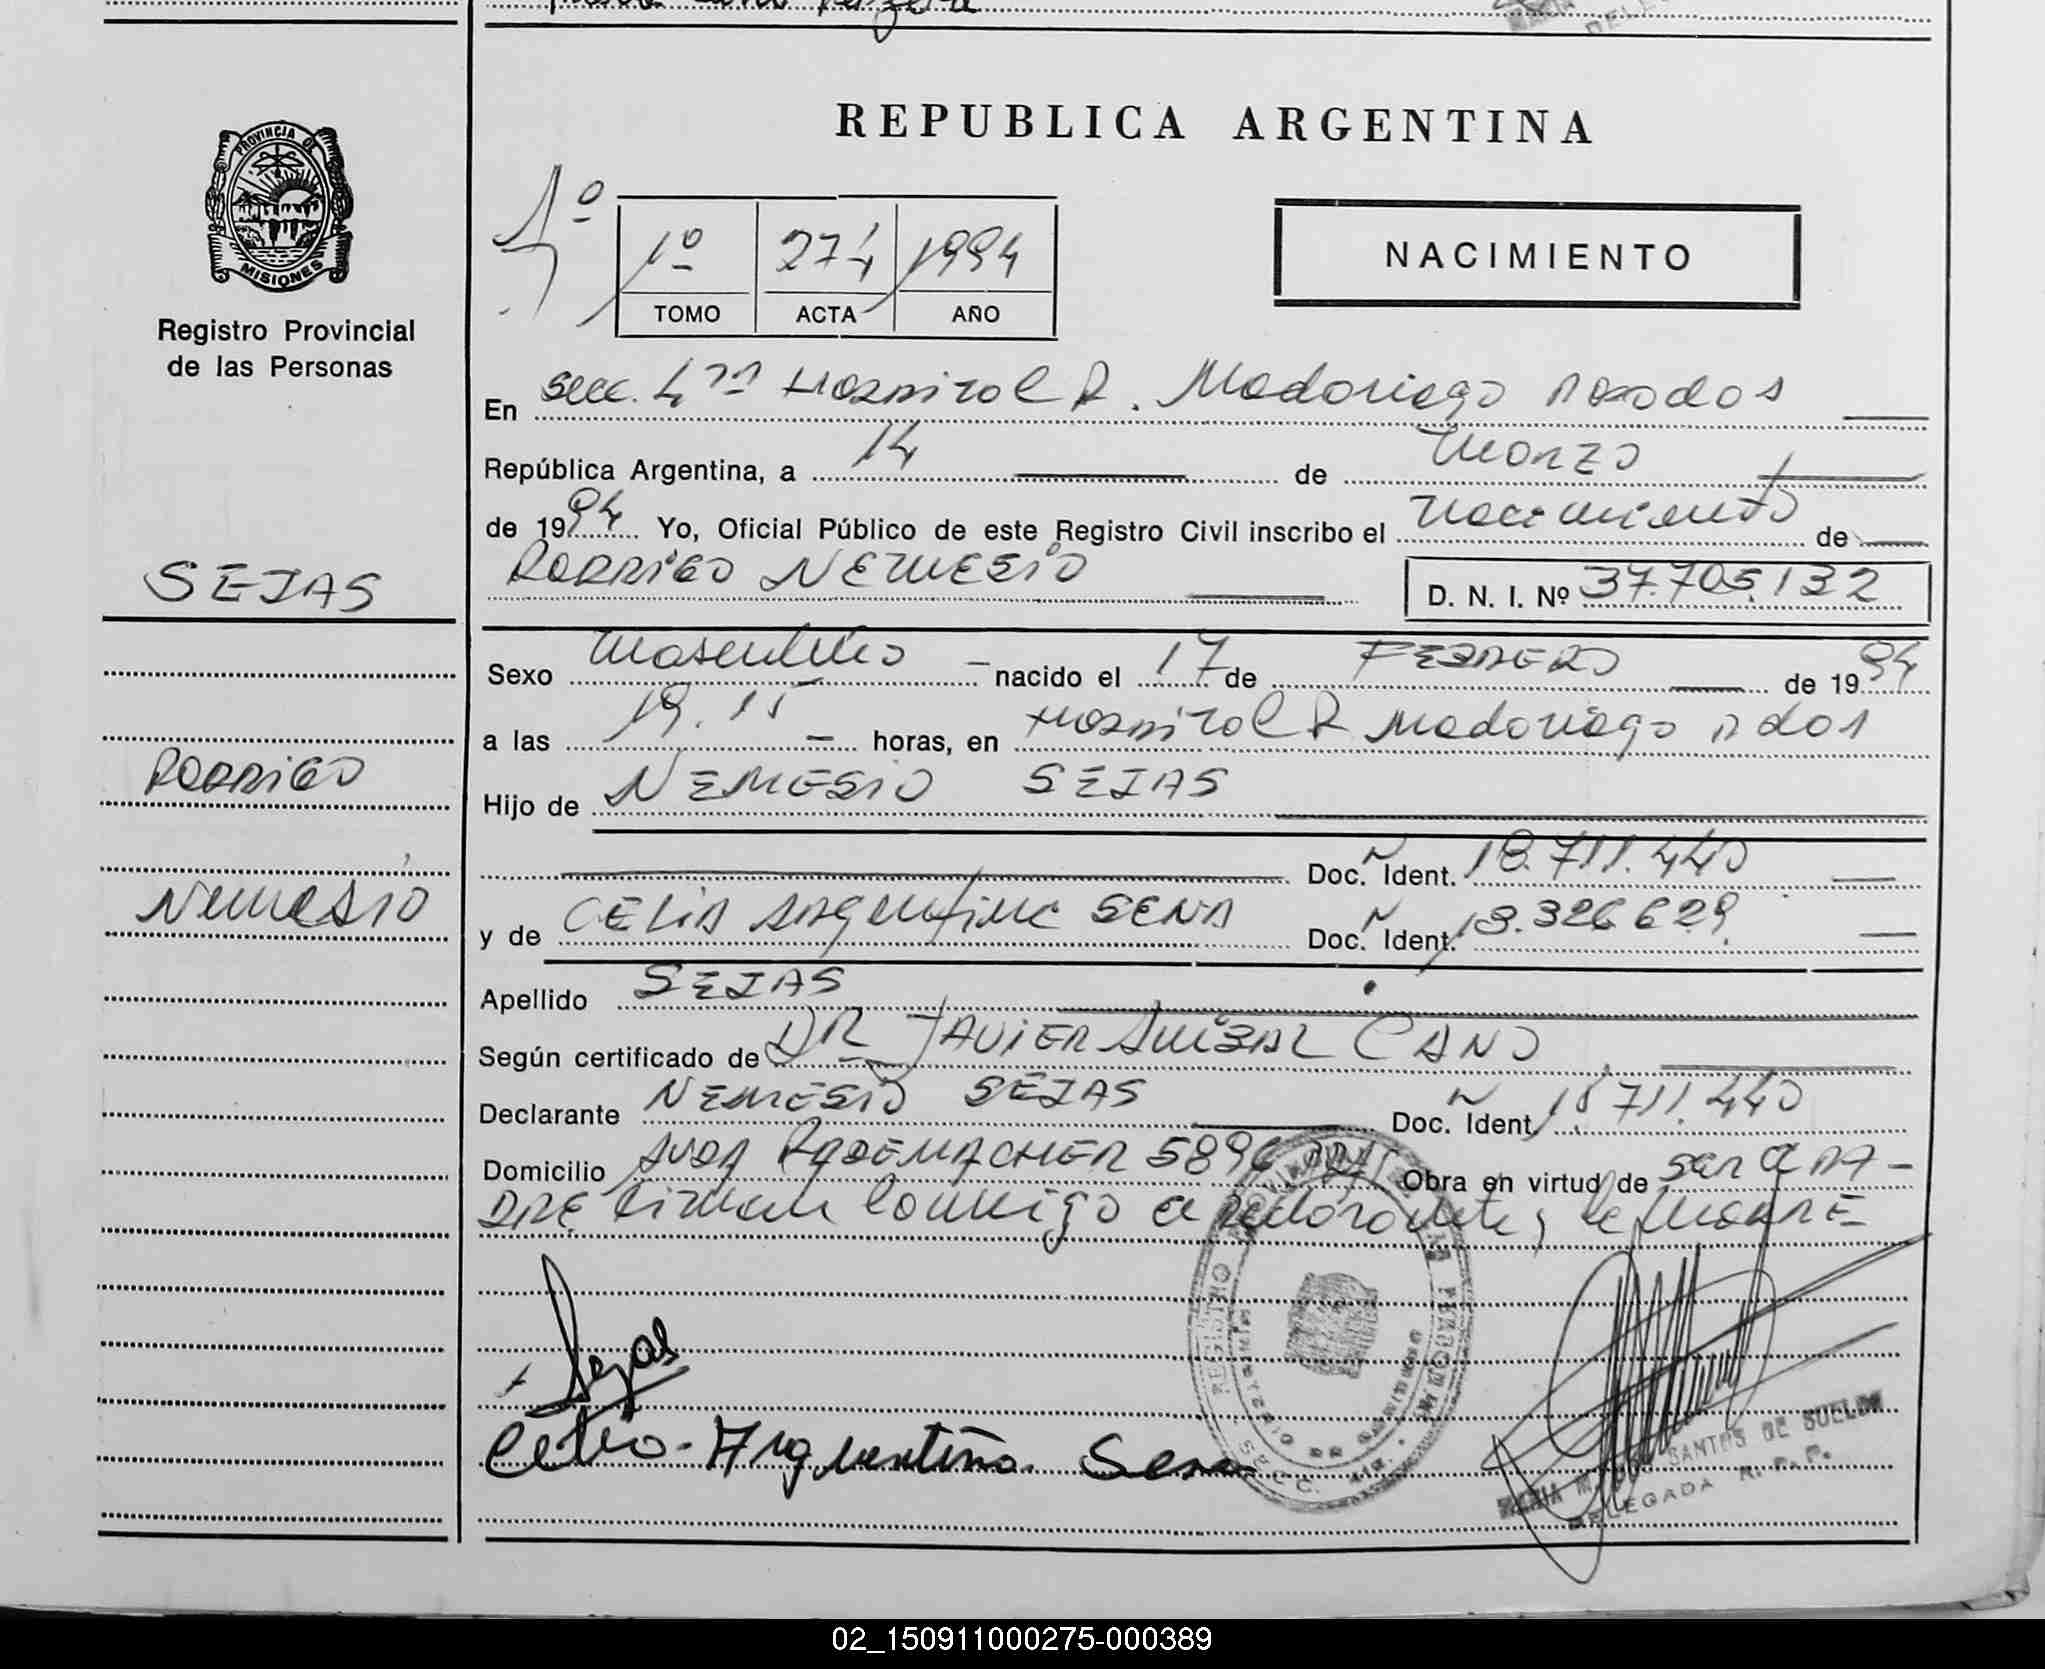 REPUBLICA ARGENTINA
PROVINCIA DE
MISIONES
Registro Provincial
de las Personas
1º
1º 274 1994
TOMO ACTA AÑO
NACIMIENTO
En secc. 4ta Hospital R. Madariaga Posadas
República Argentina, a 14 de Marzo
de 1994 Yo, Oficial Público de este Registro Civil inscribo el Nacimiento de
SEJAS
RODRIGO NEMESIO D. N. I. Nº 37.705.132
Sexo Masculino nacido el 17 de FEBRERO de 1994
a las 19.15 horas, en Hospital R Madariaga Pdas
RODRIGO
Hijo de NEMESIO SEJAS
Doc. Ident. 18.711.440
NEMESIO
y de CELIA Argentina SENA Doc. Ident. 18.326629
Apellido SEJAS
Según certificado de DR JAVIER ANIBAL CANO
Declarante NEMESIO SEJAS Doc. Ident. 18 711.440
Domicilio AVDA RADEMACHER Obra en virtud de ser el PA-
DRE Firman conmigo el declarante y la MADRE
Sejas
Celia - Argentina Sena
REGISTRO PROVINCIAL DE LAS PERSONAS
MINISTERIO DE GOBIERNO
SECC. 4ta.
MARIA SANTOS DE SUELDO
DELEGADA R. P. P.
02_150911000275-000389